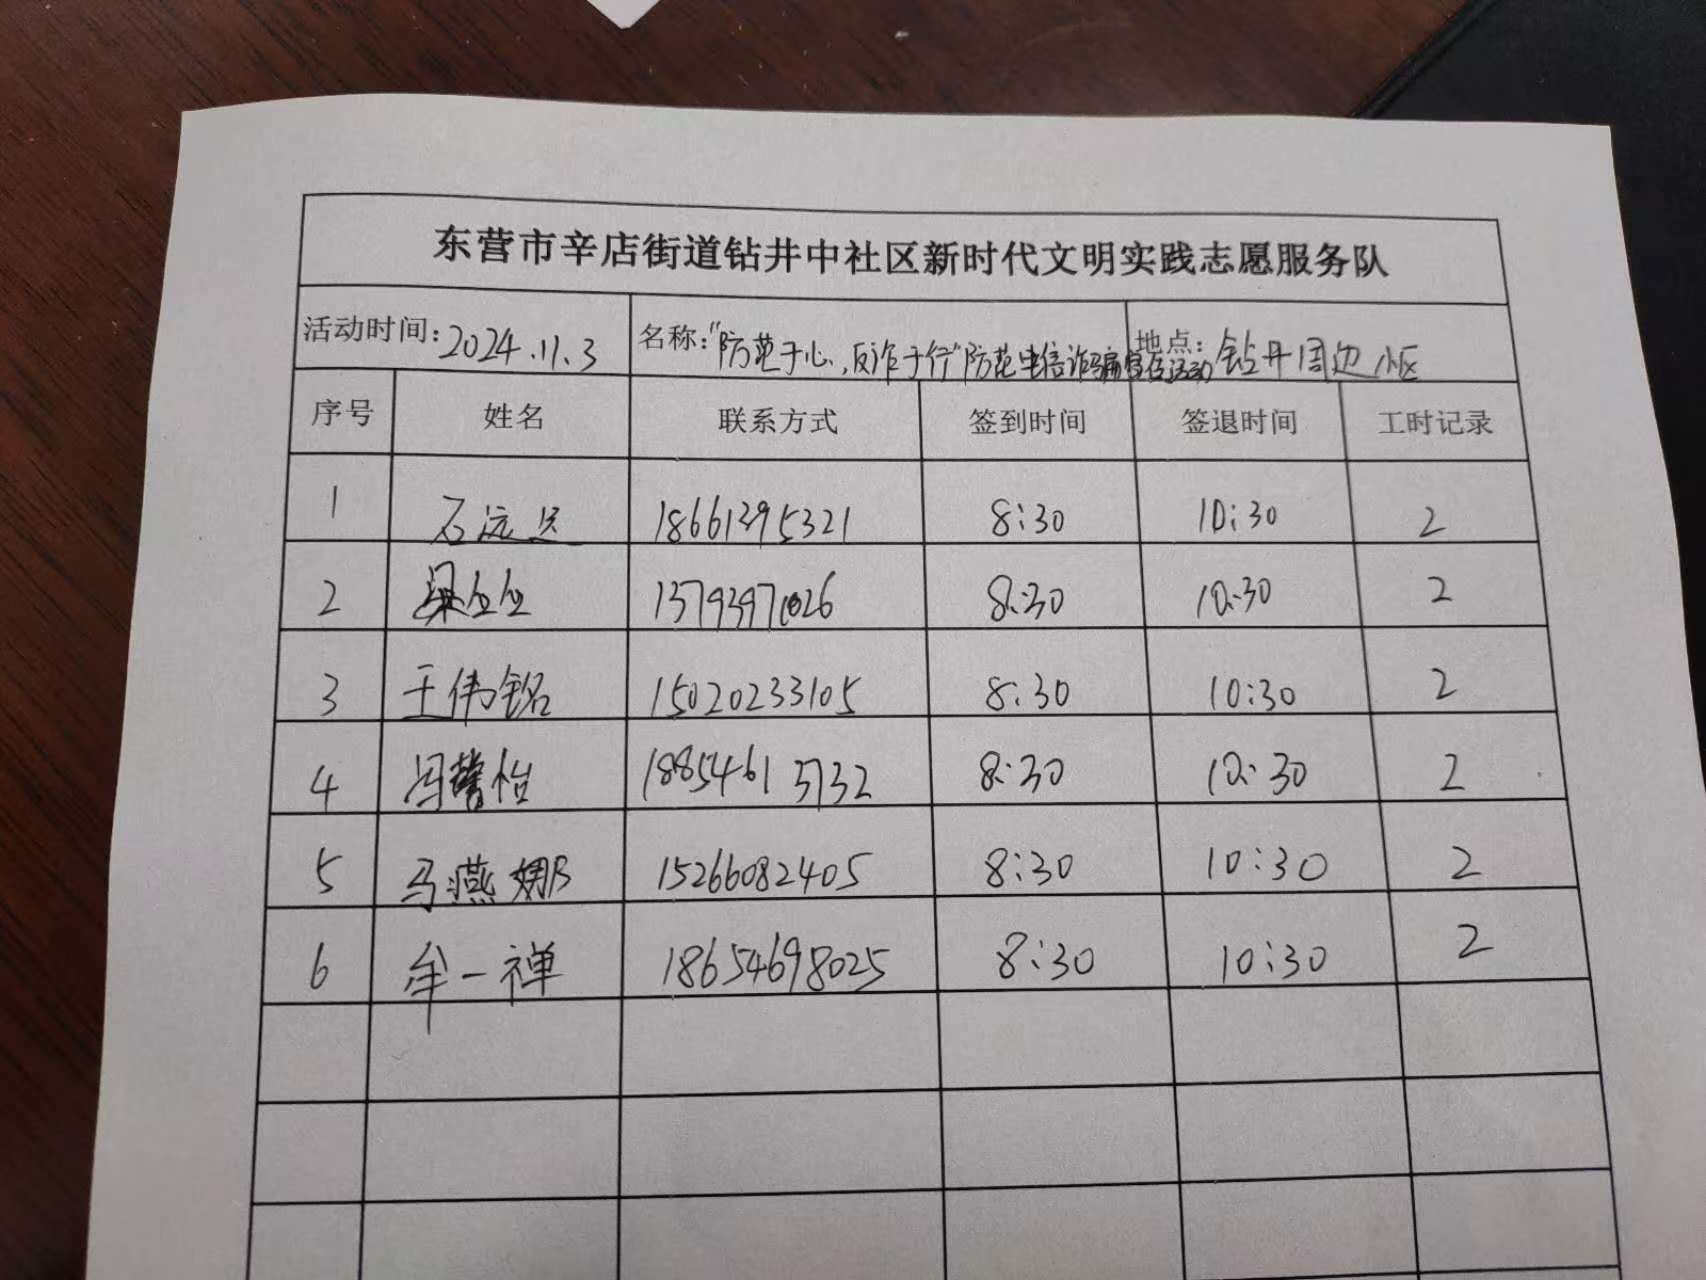 东营市辛店街道钻井中社区新时代文明实践志愿服务队
活动时间：2024.11.3 名称："防范于心，反诈于行"防范电信诈骗宣传活动 地点：钻井周边小区
序号 姓名 联系方式 签到时间 签退时间 工时记录
1 石远 18661395321 8:30 10:30 2
2 梁 13793971026 8:30 10:30 2
3 王伟铭 15020233105 8:30 10:30 2
4 冯馨怡 18854613732 8:30 10:30 2
5 马燕娜 15266082405 8:30 10:30 2
6 牟一禅 18654698025 8:30 10:30 2